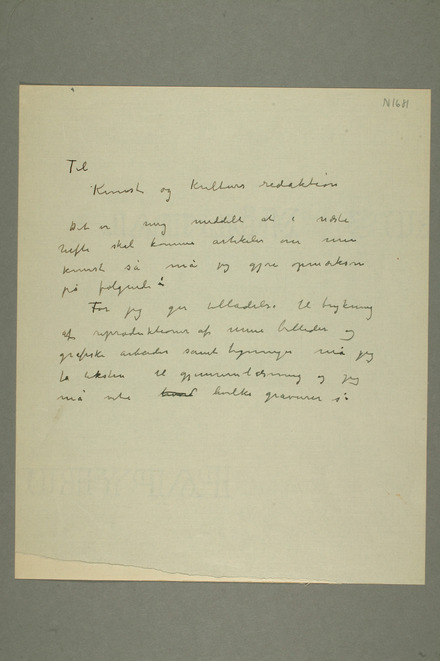 N1681
Til
Kunst og Kulturs redaktion
Det er mig meddelt at i næste
hefte skal komme artikeler om min
kunst så må jeg gjøre opmærksom
på følgende
Før jeg ger tilladelse til trykning
af reproduktioner af mine billeder og
grafiske arbeider samt tegninger må jeg
få teksten til gjennemlæsning og jeg
må vite hvilke gravurer s